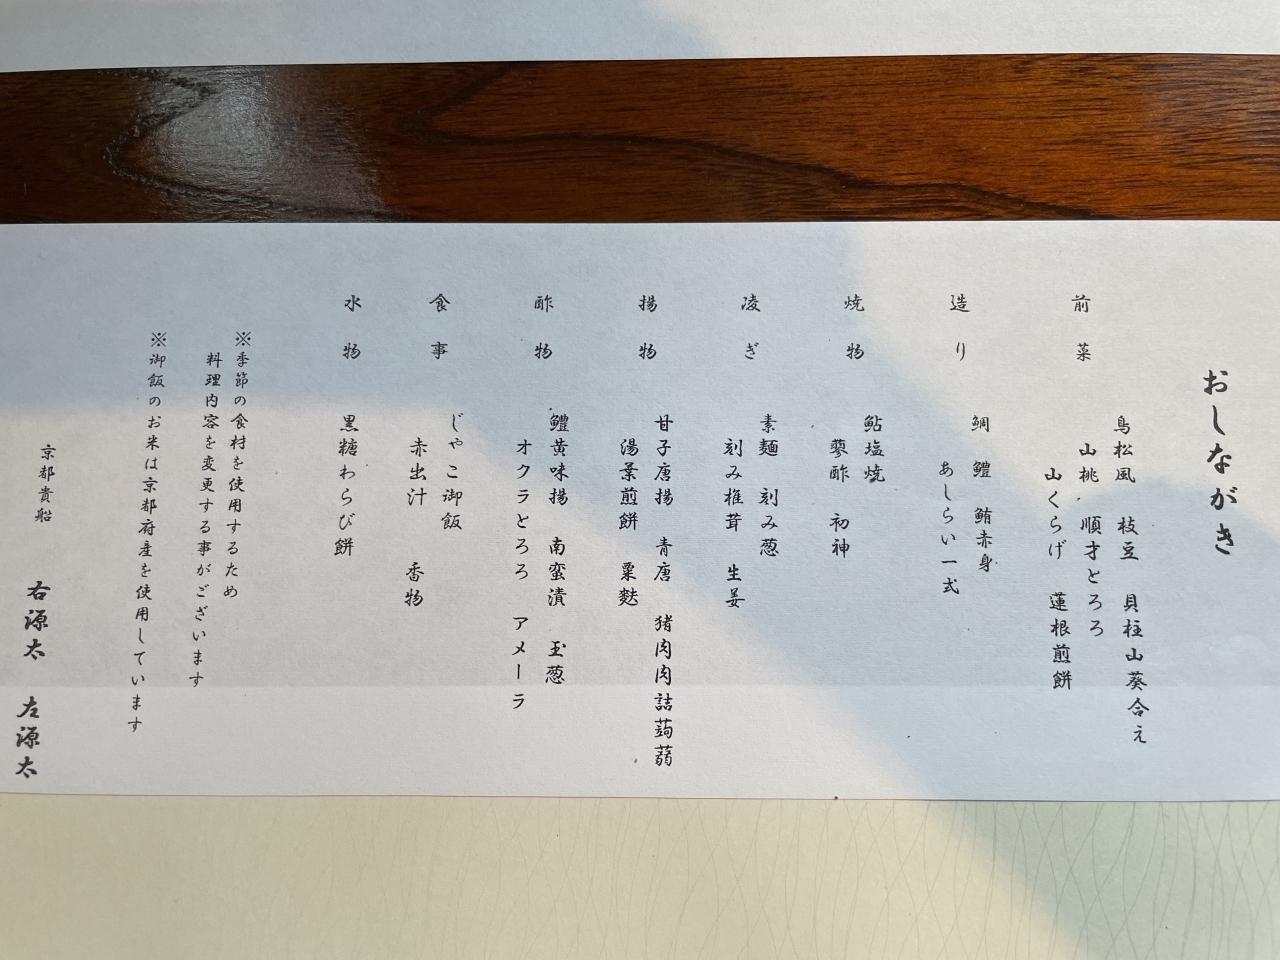 おしながき
前菜
鳥松風 枝豆 貝柱山葵合え
山桃 順才とろろ
山くらげ 蓮根煎餅
造り
鯛 鱧 鮪赤身
あしらい一式
焼物
鮎塩焼
蓼酢 初神
凌ぎ
素麺 刻み葱
刻み椎茸 生姜
揚物
甘子唐揚 青唐 猪肉肉詰蒟蒻
湯葉煎餅 粟麩
酢物
鱧黄味揚 南蛮漬 玉葱
オクラとろろ アメーラ
食事
じゃこ御飯
赤出汁 香物
水物
黒糖わらび餅
※季節の食材を使用するため
料理内容を変更する事がございます
※御飯のお米は京都府産を使用しています
京都貴船 右源太 左源太